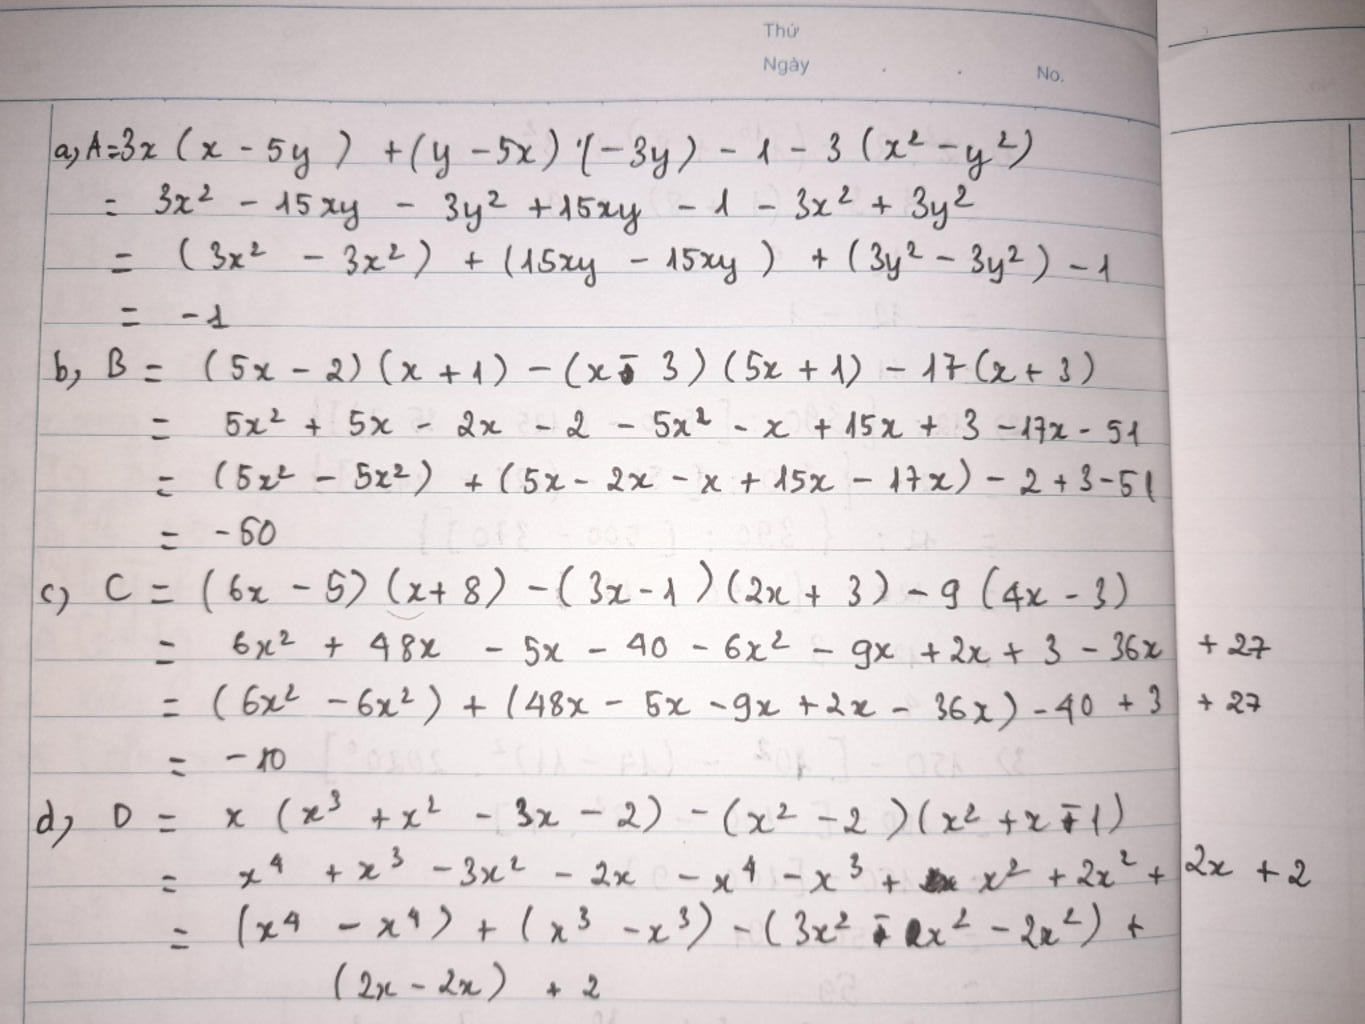 Thứ
Ngày
No.
a, A=3x(x - 5y) + (y - 5x) . (-3y) - 1 - 3(x² - y²)
= 3x² - 15xy - 3y² + 15xy - 1 - 3x² + 3y²
= (3x² - 3x²) + (15xy - 15xy) + (3y² - 3y²) - 1
= -1
b, B = (5x - 2)(x + 1) - (x - 3)(5x + 1) - 17(x + 3)
= 5x² + 5x - 2x - 2 - 5x² - x + 15x + 3 - 17x - 51
= (5x² - 5x²) + (5x - 2x - x + 15x - 17x) - 2 + 3 - 51
= -50
c, C = (6x - 5)(x + 8) - (3x - 1)(2x + 3) - 9(4x - 3)
= 6x² + 48x - 5x - 40 - 6x² - 9x + 2x + 3 - 36x + 27
= (6x² - 6x²) + (48x - 5x - 9x + 2x - 36x) - 40 + 3 + 27
= -10
d, D = x(x³ + x² - 3x - 2) - (x² - 2)(x² + x - 1)
= x⁴ + x³ - 3x² - 2x - x⁴ - x³ + x² + 2x² + 2x + 2
= (x⁴ - x⁴) + (x³ - x³) - (3x² - x² - 2x²) +
(2x - 2x) + 2